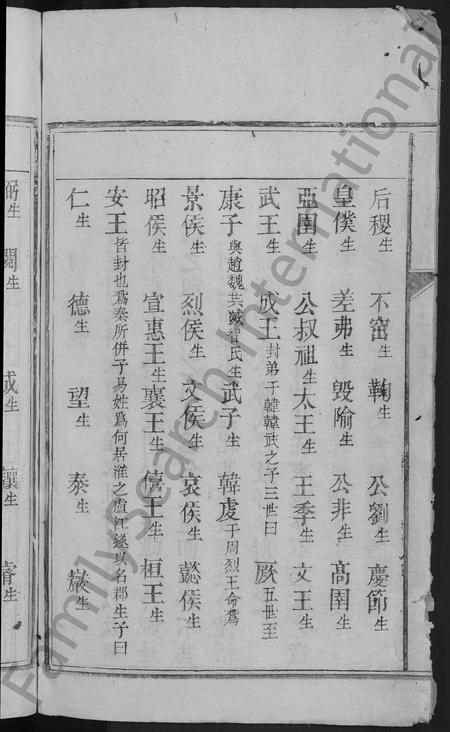 后稷生 不窋生 鞠生 公劉生 慶節生
皇僕生 差弗生 毀隃生 公非生 高圉生
亞圉生 公叔祖生 太王生 王季生 文王生
武王生 成王封弟于韓韓武之子三世曰 厥五世至
康子與趙魏共滅智氏生 武子生 韓虔于周烈王命爲
景侯生 烈侯生 文侯生 哀侯生 懿侯生
昭侯生 宣惠王生 襄王生 僖王生 桓王生
安王皆封也爲秦所併子易姓爲何居淮之廬江遂以名郡生子曰
仁生 德生 望生 泰生 巖生
弼生 闕生 成生 讓生 睿生
FamilySearch International